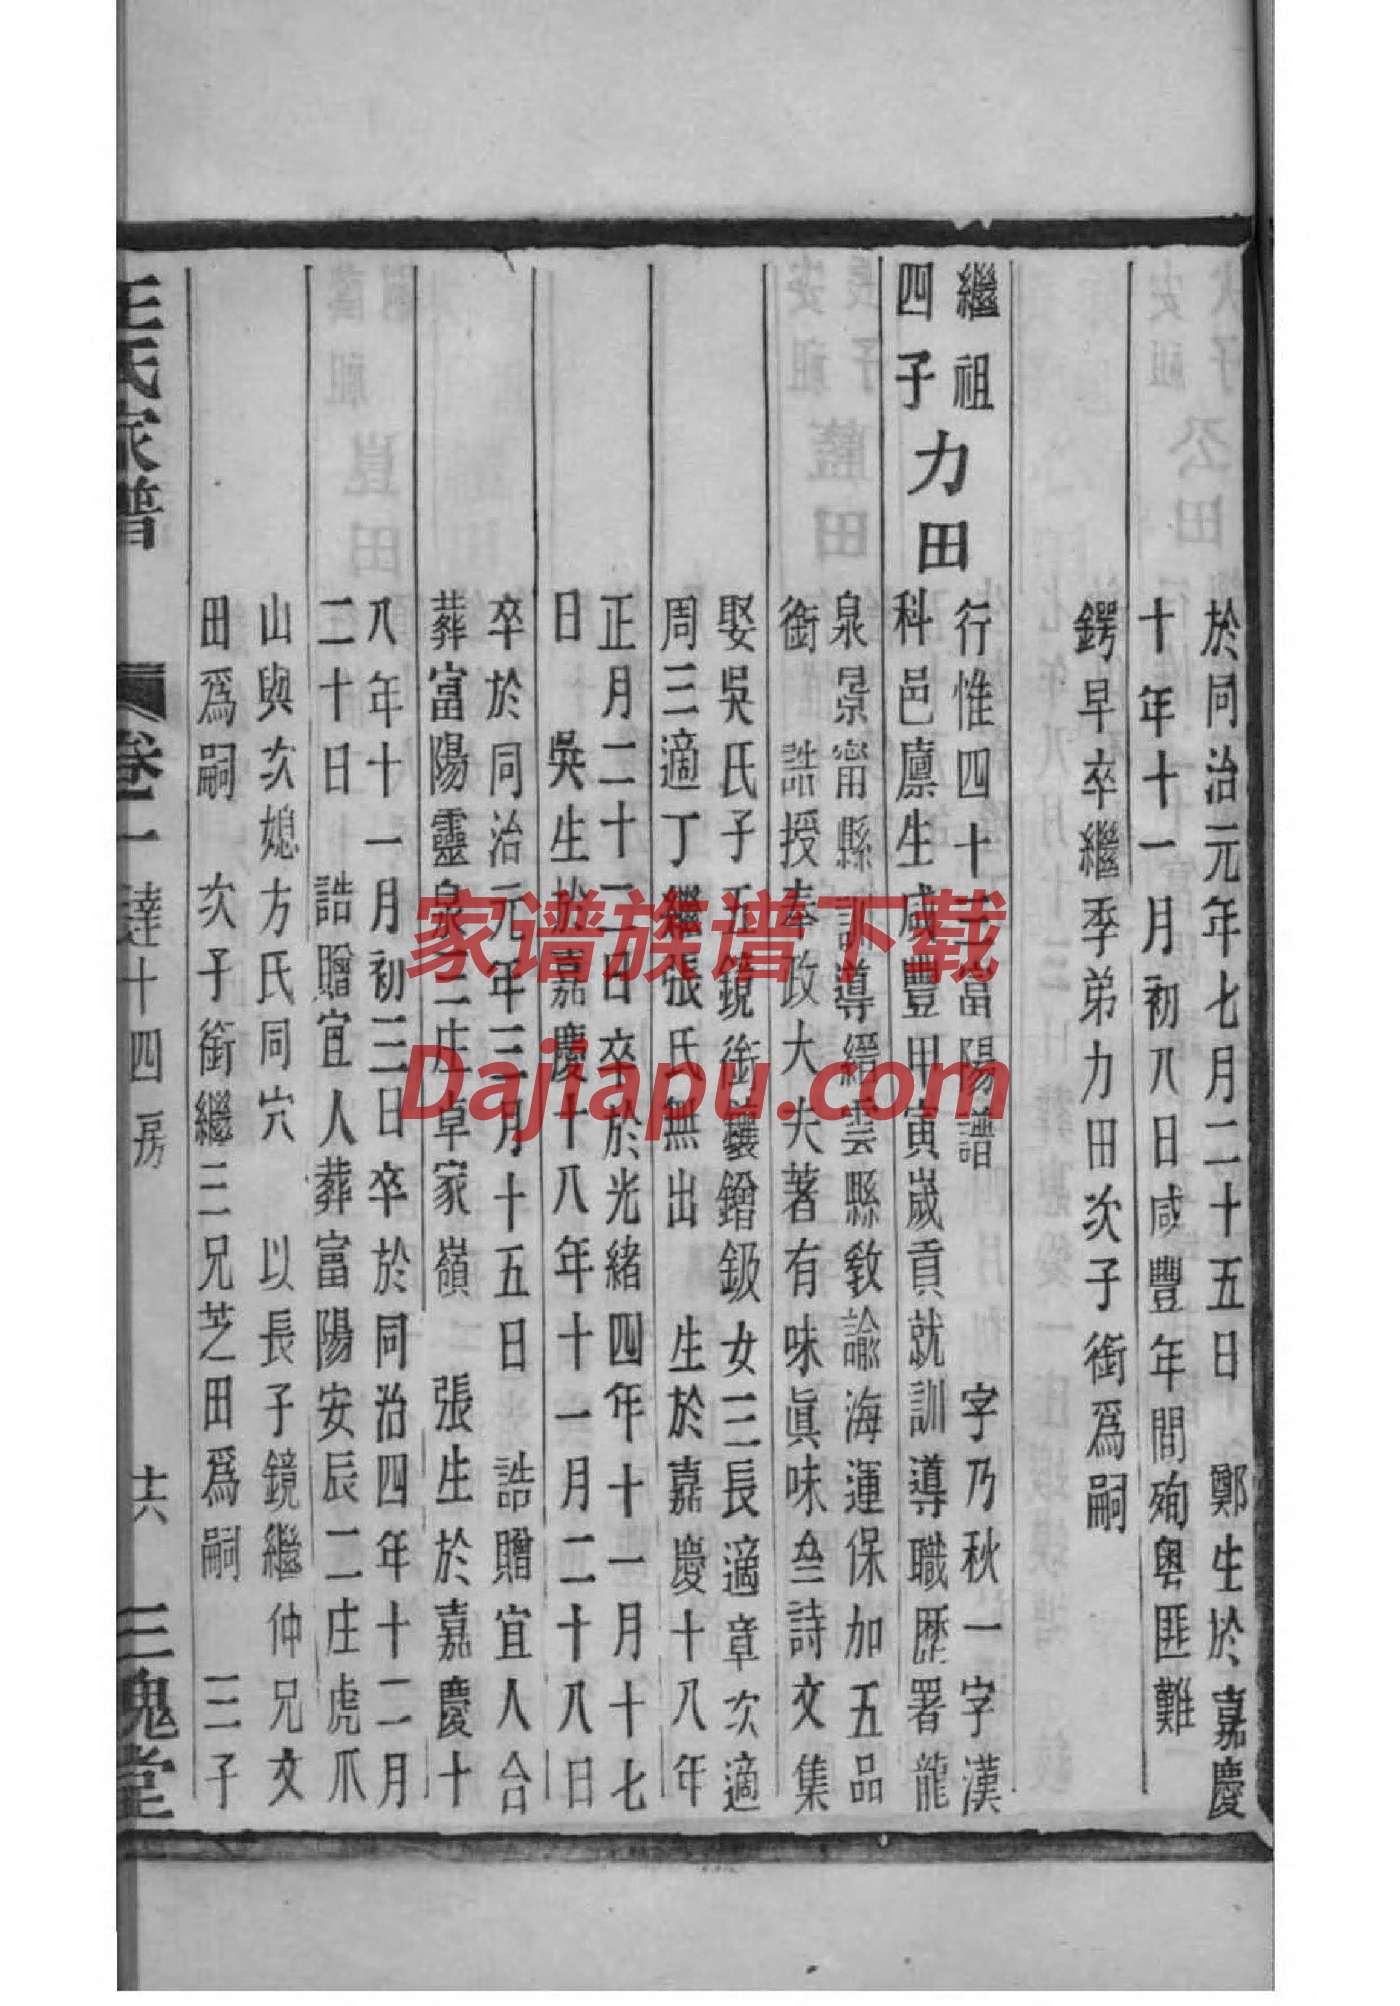 於同治元年七月二十五日　鄭生於嘉慶
十年十一月初八日咸豐年間殉粵匪難
鍔早卒繼季弟力田次子銜爲嗣
繼祖
四子
力田
行惟四十三富陽譜　字乃秋一字漢
科邑廪生咸豐甲寅嵗貢就訓導職歷署龍
泉景甯縣訓導縉雲縣敎諭海運保加五品
銜　誥授奉政大夫著有味眞味仝詩文集
娶吳氏子五鏡銜鑲鐕鈒女三長適章次適
周三適丁繼張氏無出　生於嘉慶十八年
正月二十二日卒於光緒四年十一月十七
日　吳生於嘉慶十八年十一月二十八日
卒於同治元年三月十五日　誥贈宜人合
葬富陽靈泉三庄草家嶺　張生於嘉慶十
八年十一月初三日卒於同治四年十二月
二十日　誥贈宜人葬富陽安辰二庄虎爪
山與次媳方氏同穴　以長子鏡繼仲兄文
田爲嗣　次子銜繼三兄芝田爲嗣　三子
王氏家譜
卷二
達十四房
十六
三槐堂
家谱族谱下载
Dajiapu.com